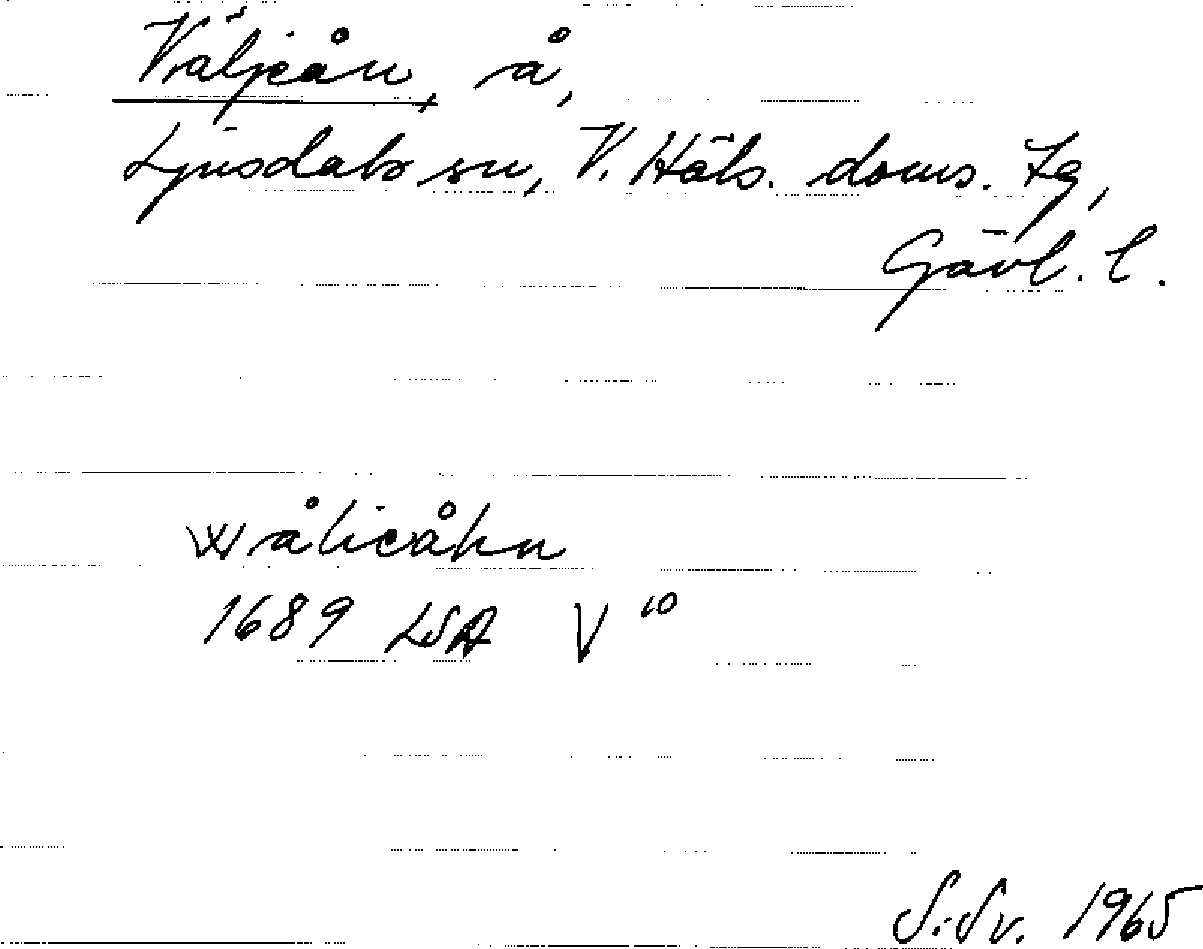 Väljeån, å,
Ljusdals sn, V. Häls. doms. tg,
Gävl. l.
Wålieåhn
1689 LSA V 10
S.Sv. 1965